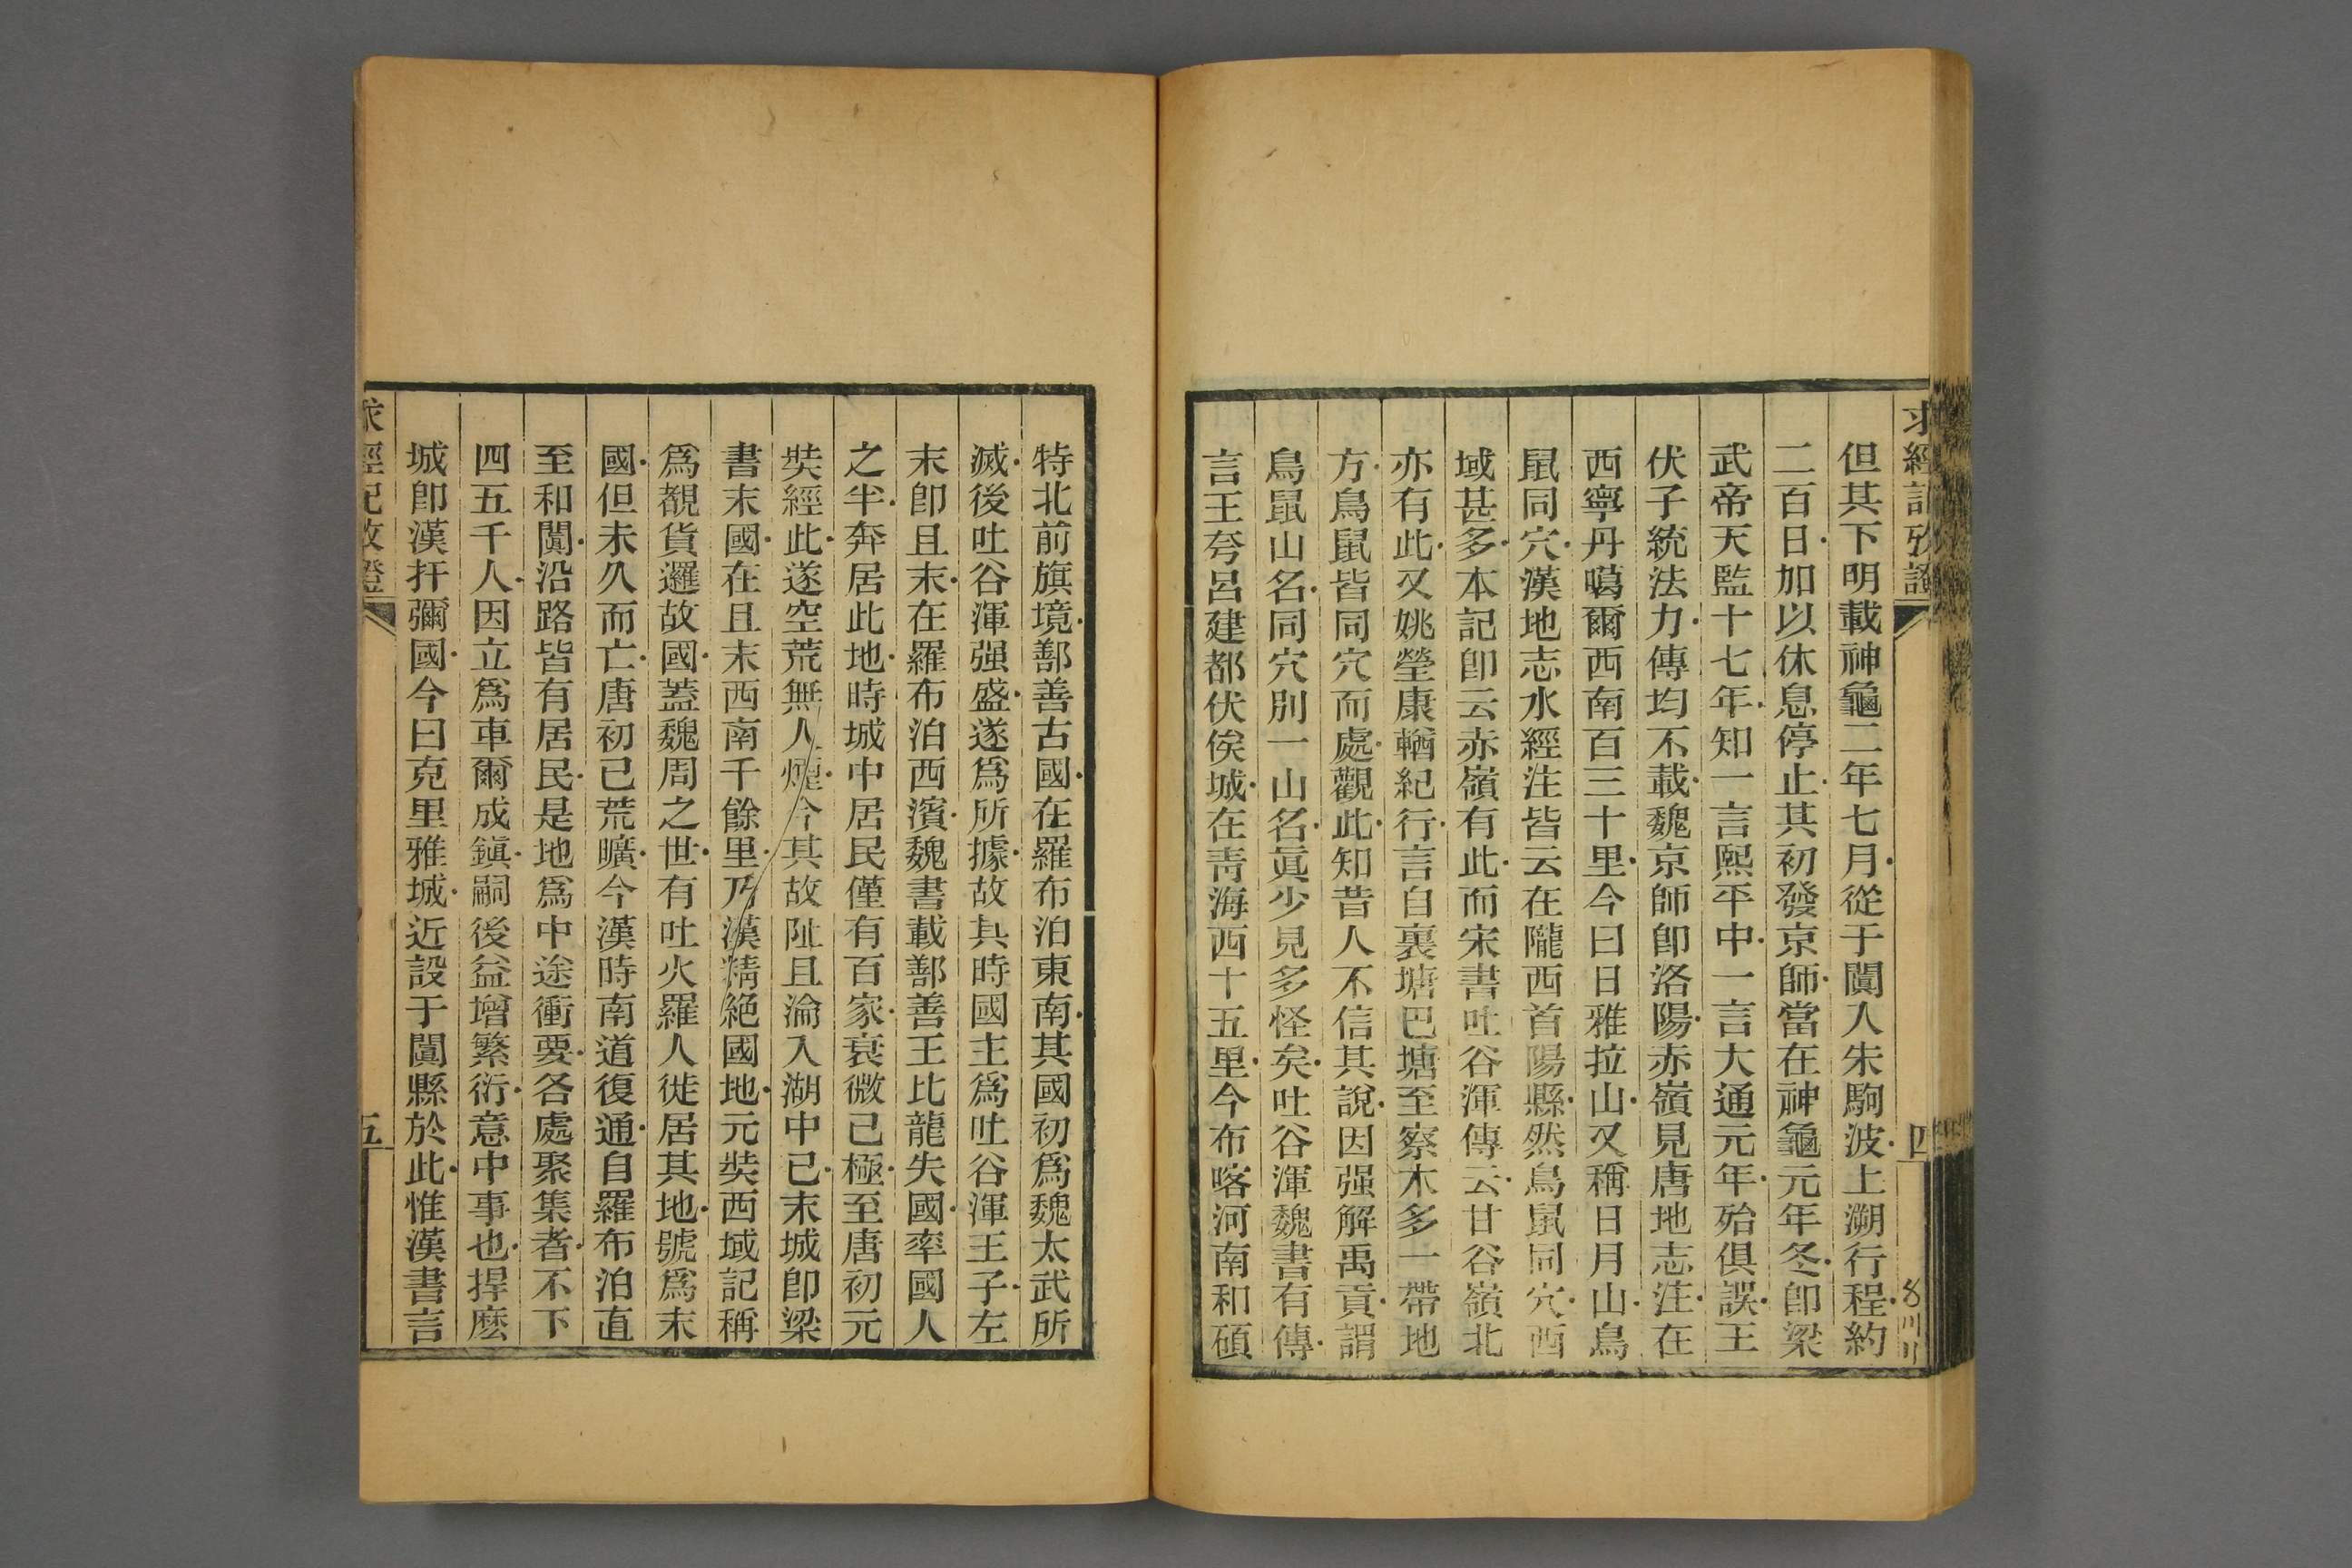 求經記攷證
四
但其下明載神龜二年七月從于闐入朱駒波上溯行程約
二百日加以休息停止其初發京師當在神龜元年冬卽梁
武帝天監十七年知一言熙平中一言大通元年殆俱誤王
伏子統法力傳均不載魏京師卽洛陽赤嶺見唐地志注在
西寧丹噶爾西南百三十里今曰日雅拉山又稱日月山鳥
鼠同穴漢地志水經注皆云在隴西首陽縣然鳥鼠同穴西
域甚多本記卽云赤嶺有此而宋書吐谷渾傳云甘谷嶺北
亦有此又姚瑩康輶紀行言自裏塘巴塘至察木多一帶地
方鳥鼠皆同穴而處觀此知昔人不信其說因强解禹貢謂
鳥鼠山名同穴別一山名眞少見多怪矣吐谷渾魏書有傳
言王夸呂建都伏俟城在靑海西十五里今布喀河南和碩
特北前旗境鄯善古國在羅布泊東南其國初爲魏太武所
滅後吐谷渾强盛遂爲所據故其時國主爲吐谷渾王子左
末卽且末在羅布泊西濱魏書載鄯善王比龍失國率國人
之半奔居此地時城中居民僅有百家衰微已極至唐初元
奘經此遂空荒無人煙今其故阯且淪入湖中已末城卽梁
書末國在且末西南千餘里乃漢精絶國地元奘西域記稱
爲覩貨邏故國蓋魏周之世有吐火羅人徙居其地號爲末
國但未久而亡唐初已荒曠今漢時南道復通自羅布泊直
至和闐沿路皆有居民是地爲中途衝要各處聚集者不下
四五千人因立爲車爾成鎭嗣後益增繁衍意中事也捍麽
城卽漢扞彌國今曰克里雅城近設于闐縣於此惟漢書言
求經記攷證
五